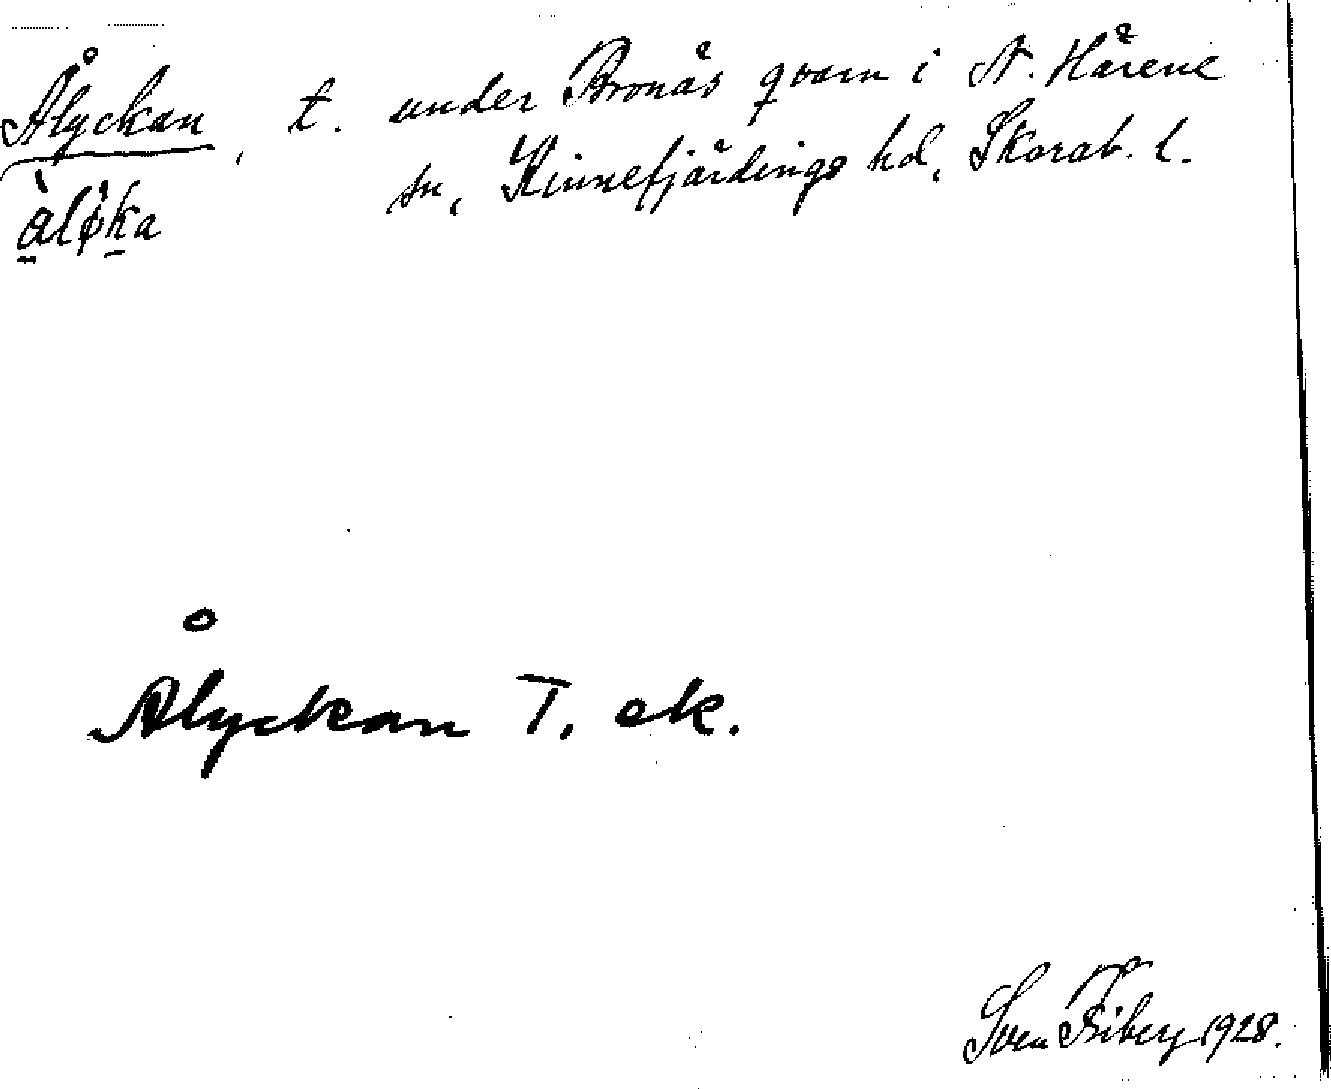 Ålyckan, t. under Bronäs qvarn i N. Härene
sn, Kinnefjärdings hd, Skarab. l.
àlø̀ka
Ålyckan T. ek.
Sven Friberg 1928.